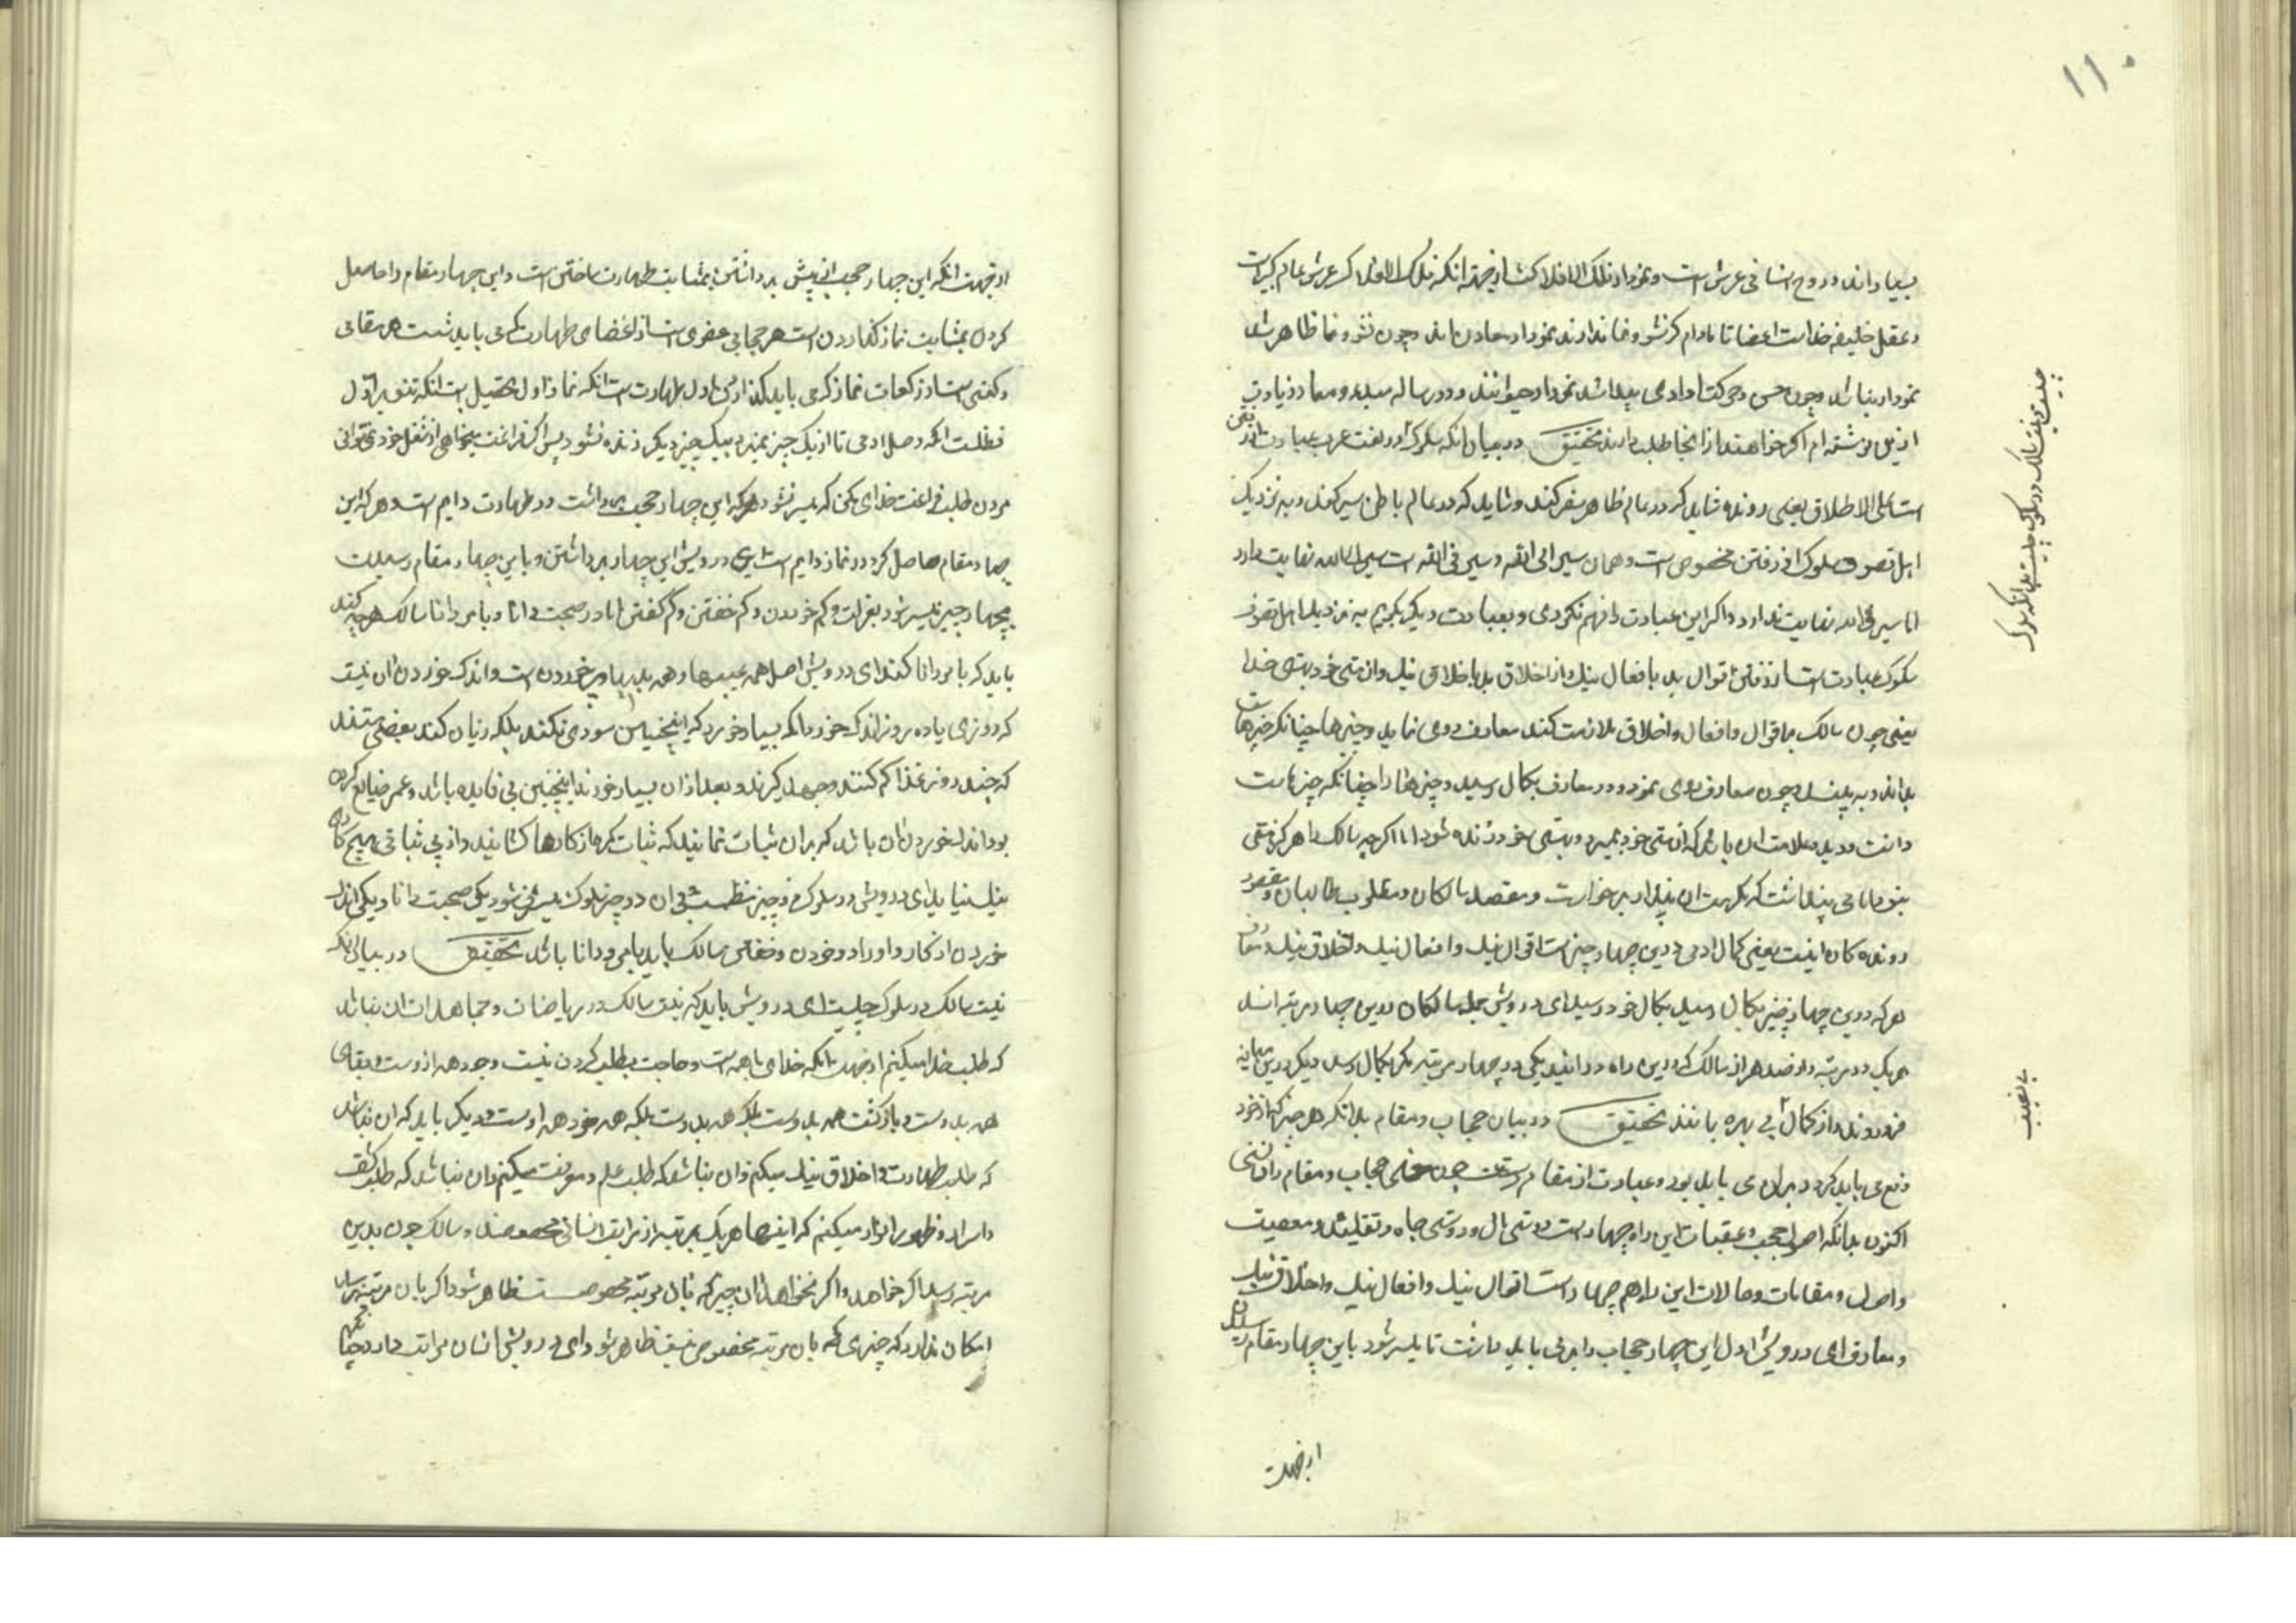 ۱۱۰
بسیاراند و روح انسانی عرش است و نمودار فلک الافلاکست از جهت انکه فلک الافلاک عرش عالم کبیرست
و عقل خلیفه خداست اعضا تا مادام که نشو و نما ندارند نمودار معادن اند و چون نشو و نما ظاهر شد
نمودار نباتند و چون حس و حرکت ارادی پیدا شد نمودار حیوانند و در رساله مبدء و معاد زیادت
ازین نوشته ام اکر خواهند از انجا طلب دارند تحقیق در بیان انکه سلوک در لغت عرب عبارت از رفتن
است علی الاطلاق یعنی رونده شاید که در عالم ظاهر سفر کند و شاید که در عالم باطن سیر کند و به نزدیک
اهل تصوف سلوک از رفتن مخصوص است و همان سیر الی الله و سیر فی الله است سیر الی الله نهایت دارد
اما سیر فی الله نهایت ندارد و اکر این عبارت را فهم نکردی و بعبارت دیکر بکویم به نزدیک اهل تصوف
سلوک عبارتست از رفتن از اقوال بد باقوال نیک و از اخلاق بد باخلاق نیک و از هستی خود بهستی خدا
یعنی چون سالک بر اقوال و افعال و اخلاق ملازمت کند معارف روی نماید و چیزها چنانکه چیزهاست
بداند و به بیند و چون معارف روی نمود و در معارف بکمال رسید و چیزها را چنانکه چیزهاست
دانست و دید علامت ان باشد که از هستی خود بمیرد و بهستی خود زنده شود اما اکرچه سالک را هرکز هستی
نبود اما می پنداشت که هست ان پندار برخاست و مقصد سالکان و مطلوب طالبان و مقصود
روندکان اینست یعنی کمال ادمی درین چهار چیز است اقوال نیک و افعال نیک و اخلاق نیک و معارف
هر که درین چهار چیز بکمال رسید بکمال خود رسید ای درویش جمله سالکان درین چهار مرتبه اند
هر یک در مرتبه و از صد هزار سالک که درین راه درایند یکی در چهار مرتبه بکمال رسد دیکر درین میانه
فرو روند و از کمال بی بهره مانند تحقیق در بیان حجاب و مقام بدانکه هر چیز که از خود
دفع می باید کرد و بران می باید بود و عبارت از مقام حجاب و مقام را دانستی
اکنون بدانکه اصول حجب و عقبات این راه چهارست دوستی مال و دوستی جاه و تقلید و معصیت
و اصول و مقامات و حالات این راه هم چهار است اقوال نیک و افعال نیک و اخلاق نیک
و معارف ای درویش اول این چهار حجاب را بر می باید داشت تا میسر شود باین چهار مقام رسیدن
از جهت
نیت سالک در سلوک چیست بدانکه سلوک
بی نصیب
از جهت انکه این چهار حجب از پیش برداشتن بمثابت طهارت ساختن است و این چهار مقام را حاصل
کردن بمثابت نماز کذاردن است هر حجابی عضوی است از اعضای طهارت که می باید شست هر مقامی
رکعتی است از رکعات نماز که می باید کذارد اول طهارت است انکه نماز اول تحصیل است انکه
ظلمت انکه وصل ادمی تا از یک چیز نمیرد بیک چیز دیکر زنده نشود پس اکر فراغت میخواهی از شغل خود نمی توانی
مردن طلب فراغت خدای مکن که میسر نشود هر که این چهار حجب برداشت در طهارت دایم است و هر که این
چهار مقام حاصل کرد در نماز دایم است ای درویش این چهار برداشتن و باین چهار مقام رسیدن
بچهار چیز میسر شود بعزلت و کم خوردن و کم خفتن و کم کفتن اما در صحبت دانا و بامر دانا سالک هر چه کند
باید که بامر دانا کند ای درویش اصل همه عیبها و همه بدیها پر خوردن است و اندک خوردن ان نیست
که روزی یا ده روز اندک خورد انکه بسیار خورد که اینچنین سودی نکند بلکه زیان کند بعضی هستند
که چند روز غذا کم کنند و چهله کیرند و بعد ازان بسیار خورند اینچنین بی فایده باشد و عمر ضایع کردن
بود اندک خوردن ان باشد که بران ثبات نمایند که ثبات کرها از کارها کشاید و از بی ثباتی هیچ کار
نیک نیاید ای درویش در سلوک دو چیز شرط است و ان دو چیز سلوک میسر نشود یکی صحبت دانا و یکی اندک
خوردن اذکار و اوراد و خوردن و خفتن سالک باید بامر دانا باشد تحقیق در بیان انکه
نیت سالک در سلوک چیست ای درویش باید که نیت سالک در ریاضات و مجاهدات ان نباشد
که طلب خدا میکنم از جهت انکه خدای با همه است و حاجت بطلب کردن نیست وجود همه ازوست و بقای
همه بدوست و بازکشت همه بدوست بلکه همه خود اوست و دیکر باید که ان نباشد
که طلب طهارت و اخلاق نیک میکنم و ان نباشد که طلب علم و معرفت میکنم و ان نباشد که طلب کشف
و اسرار و ظهور انوار میکنم که اینها هر یک بمرتبه از مراتب انسانی مخصوصند و سالک چون بدین
مرتبه رسد اکر خواهد و اکر نخواهد ان چیز که بان مرتبه مخصوصست ظاهر شود اکر بان مرتبه نرسد
امکان ندارد که چیزی که بان مرتبه مخصوصست ظاهر شود ای درویش انسان مراتب دارد چنانکه